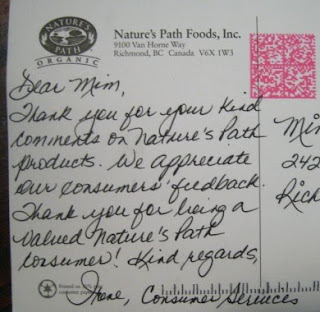 NATURE'S PATH
ORGANIC
Nature's Path Foods, Inc.
9100 Van Horne Way
Richmond, BC Canada V6X 1W3
Dear Mim,
Thank you for your kind
comments on Nature's Path
products. We appreciate
our consumers' feedback.
Thank you for being a
valued Nature's Path
consumer! Kind regards,
Irene, Consumer Services
Mim
242
Rich
Printed on
consumer